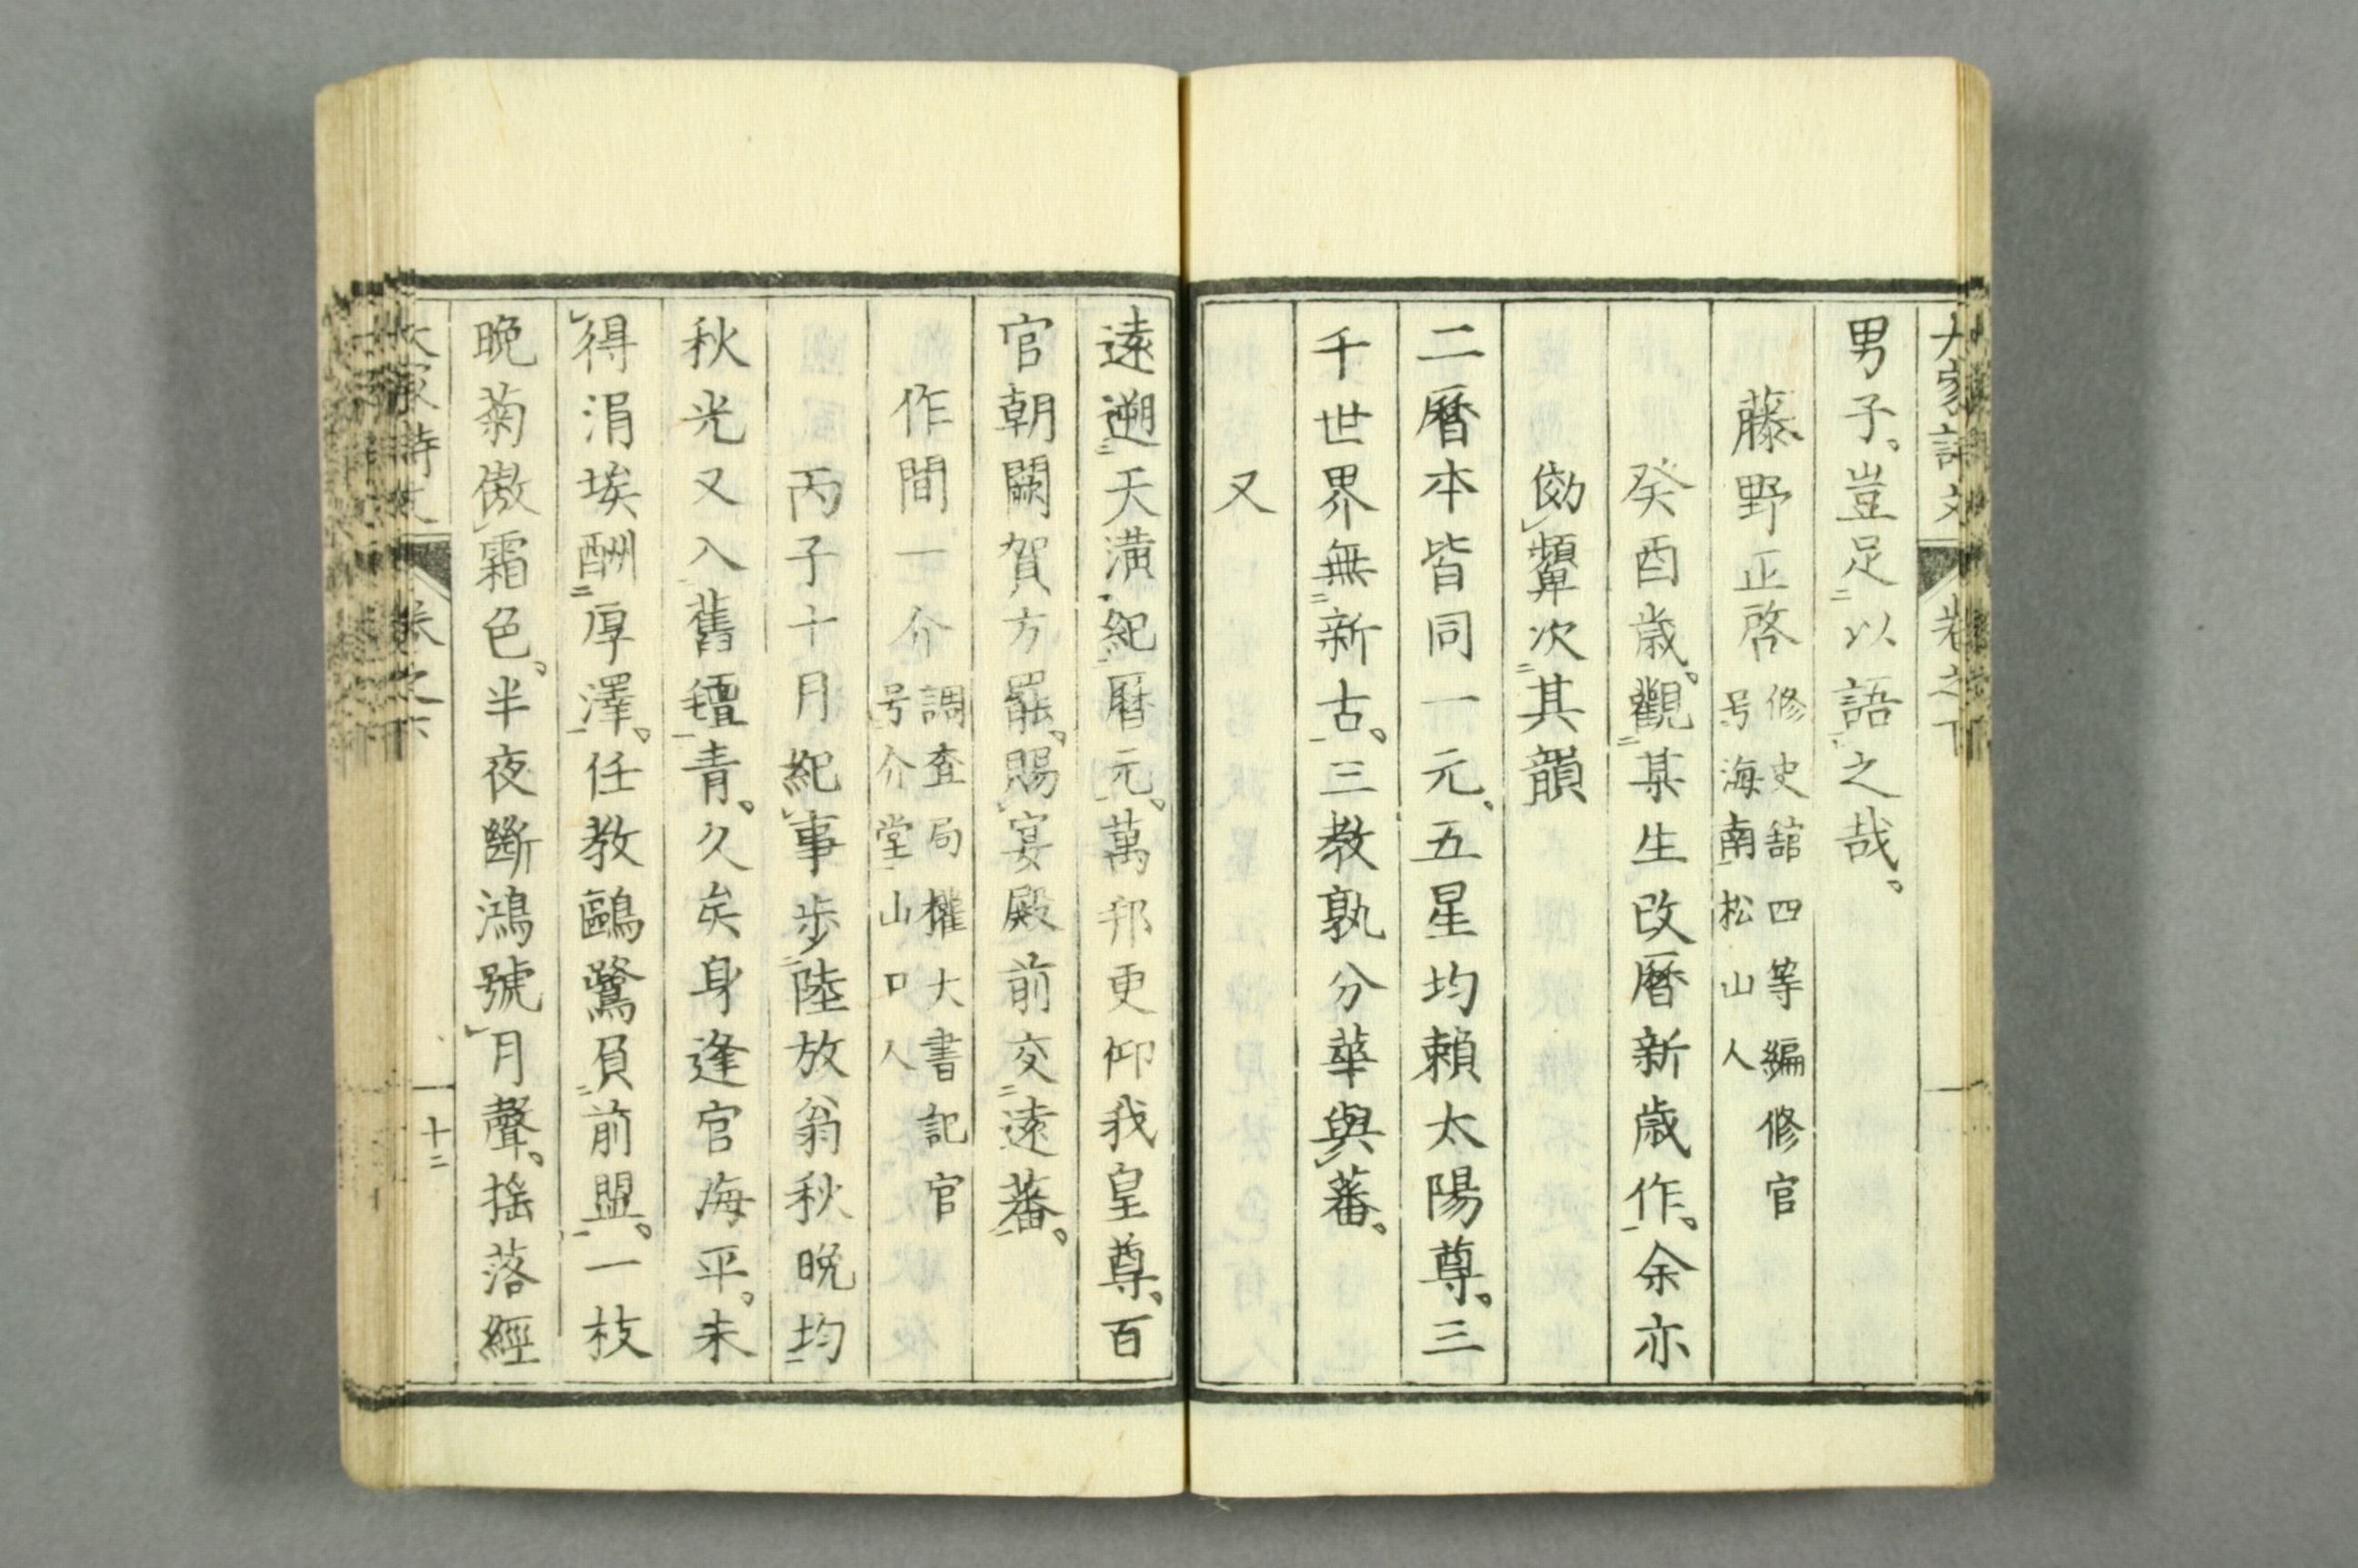 男子。豈足以語之哉。
藤野正啓 修史舘四等編修官
号海南松山人
癸酉歳。觀某生改曆新歳作。余亦
傚顰次其韻
二曆本皆同一元。五星均賴太陽尊。三
千世界無新古。三教孰分華與蕃。
又
遠遡天潢紀曆元。萬邦更仰我皇尊。百
官朝闕賀方罷。賜宴殿前交遠蕃。
作間一介 調査局權大書記官
号介堂山口人
丙子十月紀事步陸放翁秋晩均
秋光又入舊氊青。久矣身逢宦海平。未
得涓埃酬厚澤。任教鷗鷺負前盟。一枝
晩菊傲霜色。半夜斷鴻號月聲。搖落經
卷之下
十二